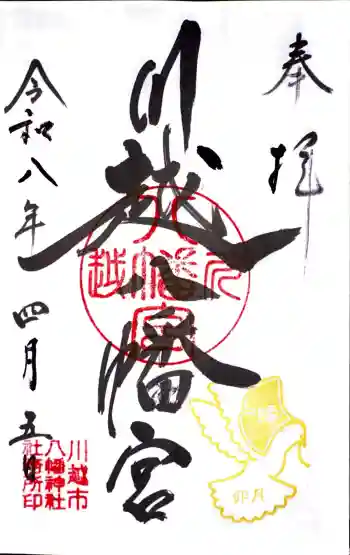 奉拝
川越八幡宮
令和八年四月五日
川越市
八幡神社
社務所印
卯月